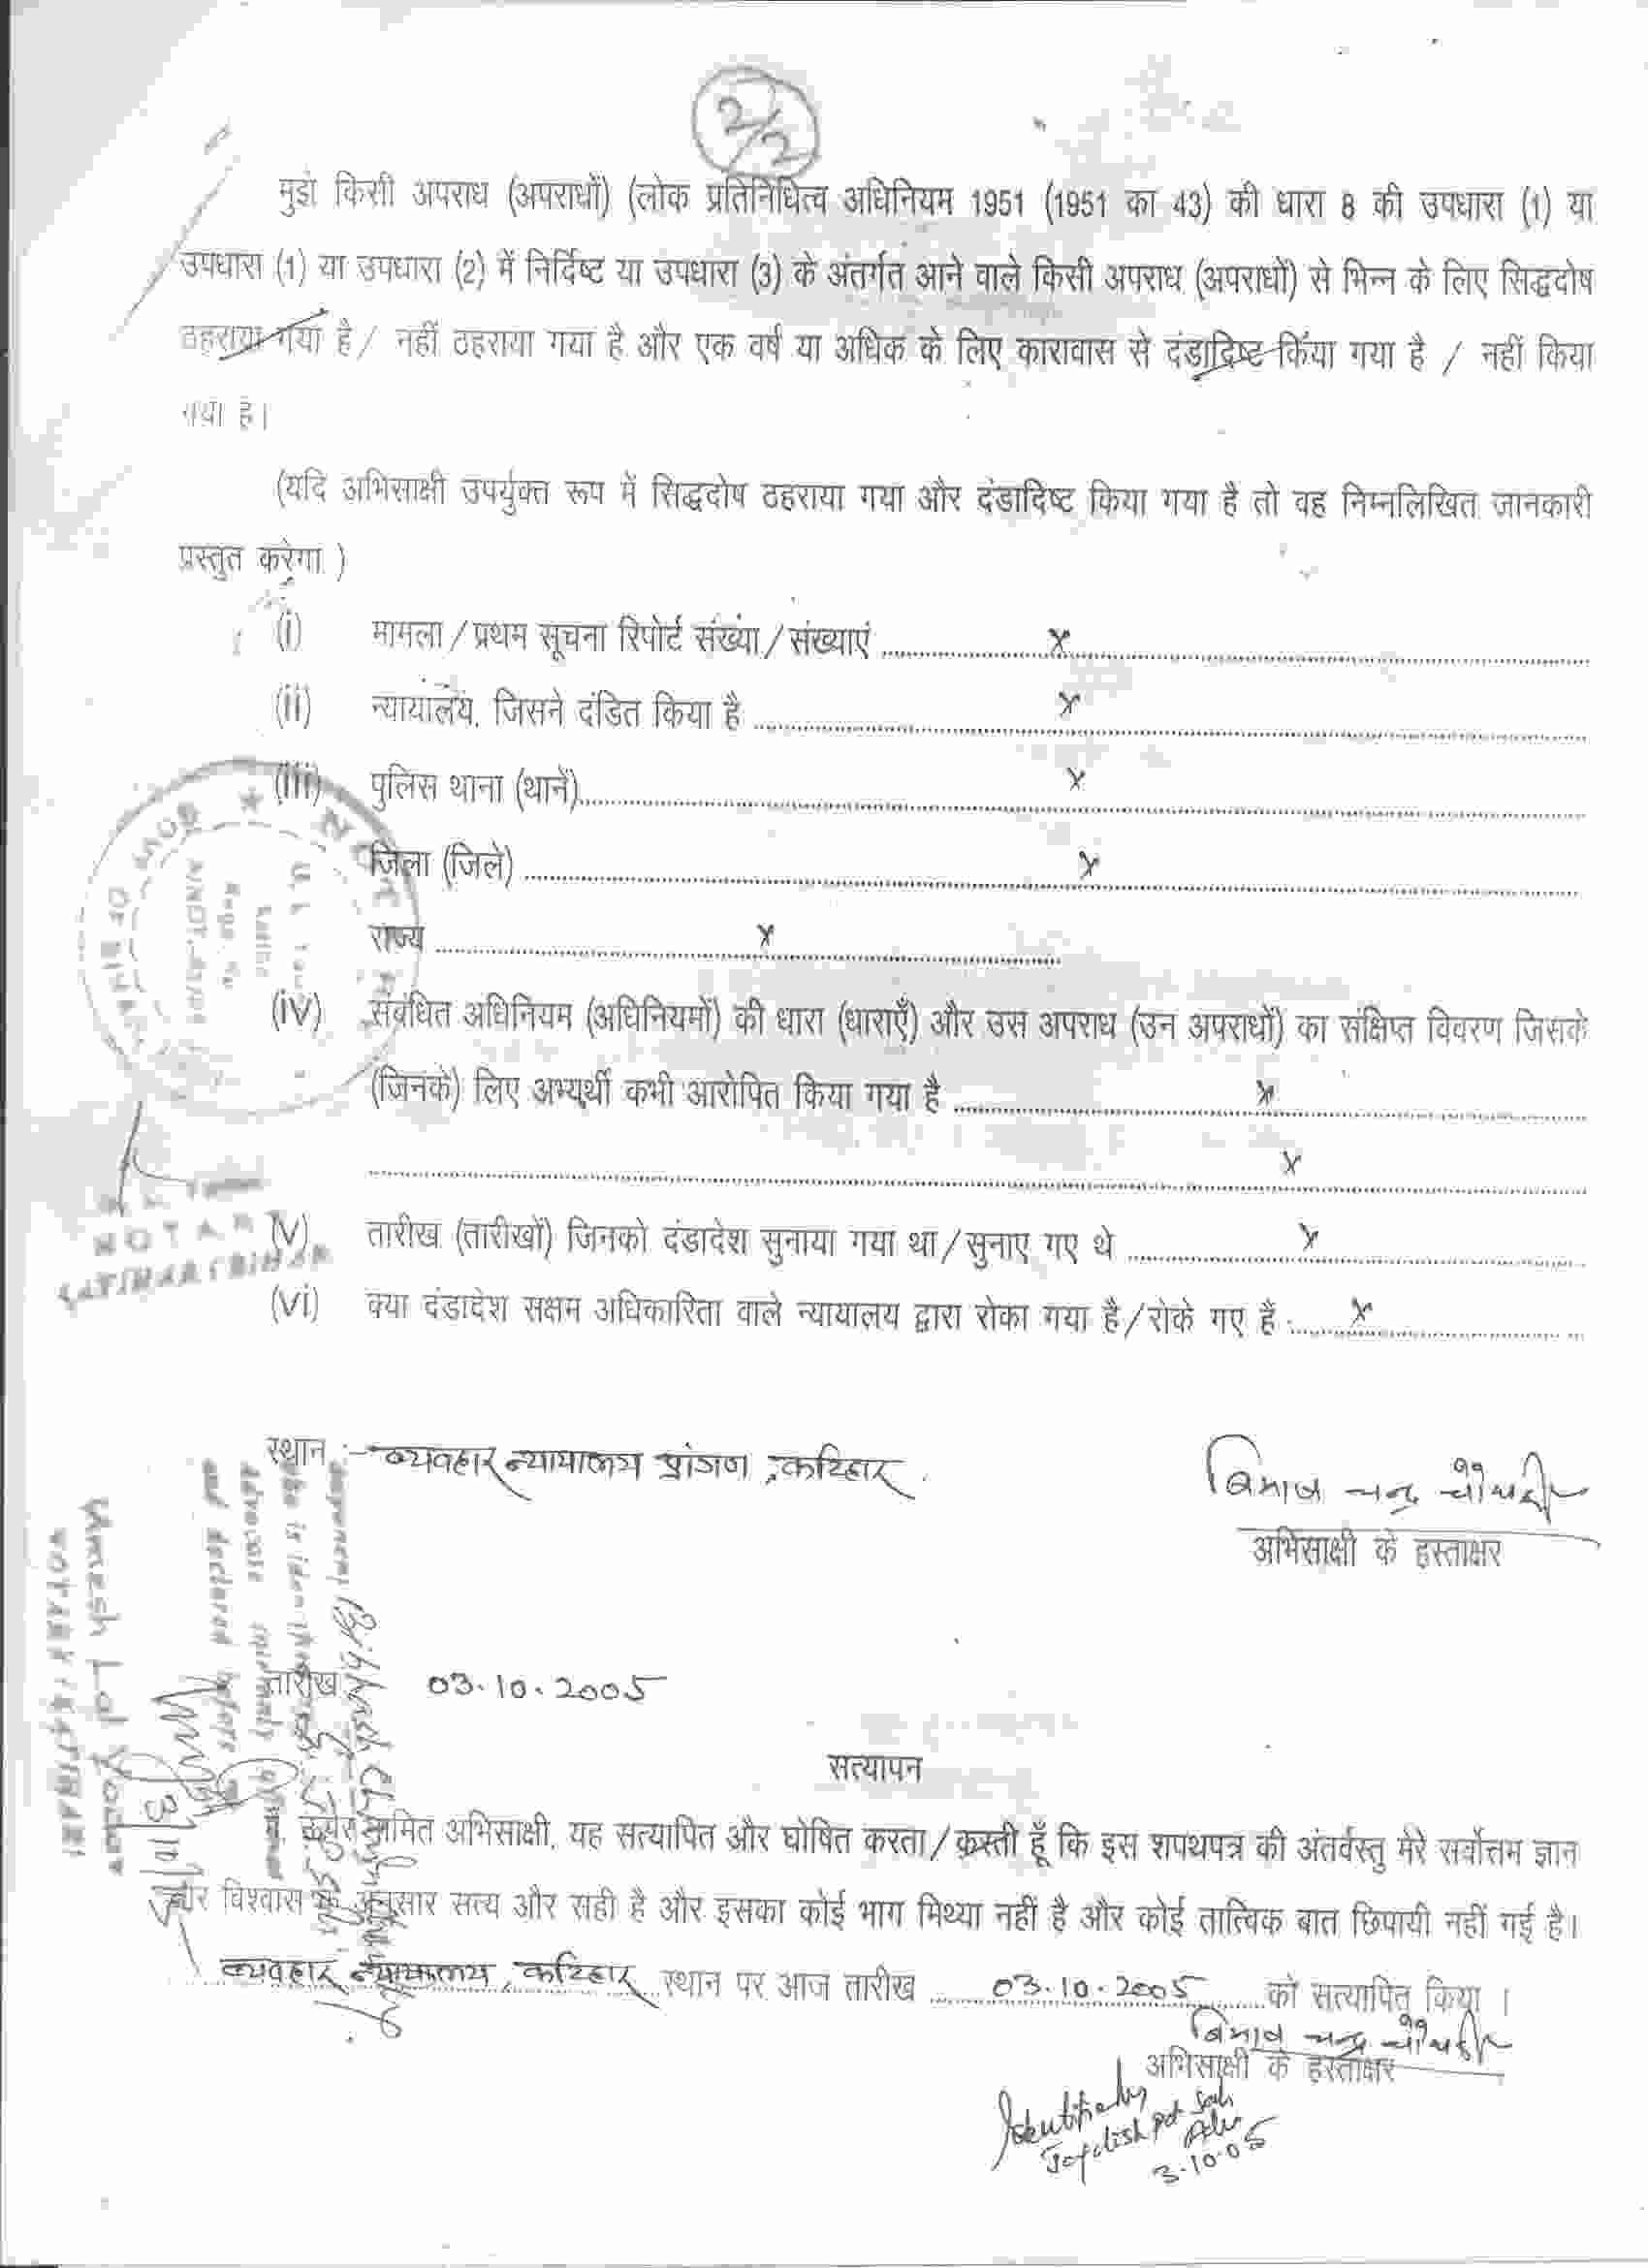 2/2
मुझे किसी अपराध (अपराधों) (लोक प्रतिनिधित्व अधिनियम 1951 (1951 का 43) की धारा 8 की उपधारा (1) या
उपधारा (1) या उपधारा (2) में निर्दिष्ट या उपधारा (3) के अंतर्गत आने वाले किसी अपराध (अपराधों) से भिन्न के लिए सिद्धदोष
ठहराया गया है / नहीं ठहराया गया है और एक वर्ष या अधिक के लिए कारावास से दंडादिष्ट किया गया है / नहीं किया
गया है।
(यदि अभिसाक्षी उपर्युक्त रूप में सिद्धदोष ठहराया गया और दंडादिष्ट किया गया है तो वह निम्नलिखित जानकारी
प्रस्तुत करेगा )
(i) मामला / प्रथम सूचना रिपोर्ट संख्या / संख्याएं x
(ii) न्यायालय, जिसने दंडित किया है x
(iii) पुलिस थाना (थानें) x
जिला (जिले) x
राज्य x
(iv) संबंधित अधिनियम (अधिनियमों) की धारा (धाराएँ) और उस अपराध (उन अपराधों) का संक्षिप्त विवरण जिसके
(जिनके) लिए अभ्यर्थी कभी आरोपित किया गया है x
x
NOTARY
KATIHAR (BIHAR
(v) तारीख (तारीखों) जिनको दंडादेश सुनाया गया था / सुनाए गए थे x
(vi) क्या दंडादेश सक्षम अधिकारिता वाले न्यायालय द्वारा रोका गया है / रोके गए हैं x
स्थान :- व्यवहार न्यायालय प्रांगण, कटिहार
विभाष चन्द्र चौधरी
अभिसाक्षी के हस्ताक्षर
Umesh Lal Yadav
NOTARY (KATIHAR)
and declared before
Advocate
Bibhash Ch
तारीख 03.10.2005
सत्यापन
अभिसाक्षी, यह सत्यापित और घोषित करता / करती हूँ कि इस शपथपत्र की अंतर्वस्तु मेरे सर्वोत्तम ज्ञान
और विश्वास के अनुसार सत्य और सही है और इसका कोई भाग मिथ्या नहीं है और कोई तात्विक बात छिपायी नहीं गई है।
व्यवहार न्यायालय, कटिहार स्थान पर आज तारीख 03.10.2005 को सत्यापित किया ।
विभाष चन्द्र चौधरी
अभिसाक्षी के हस्ताक्षर
Identified by
Jagdish Pd. Sah
Adv.
3.10.05